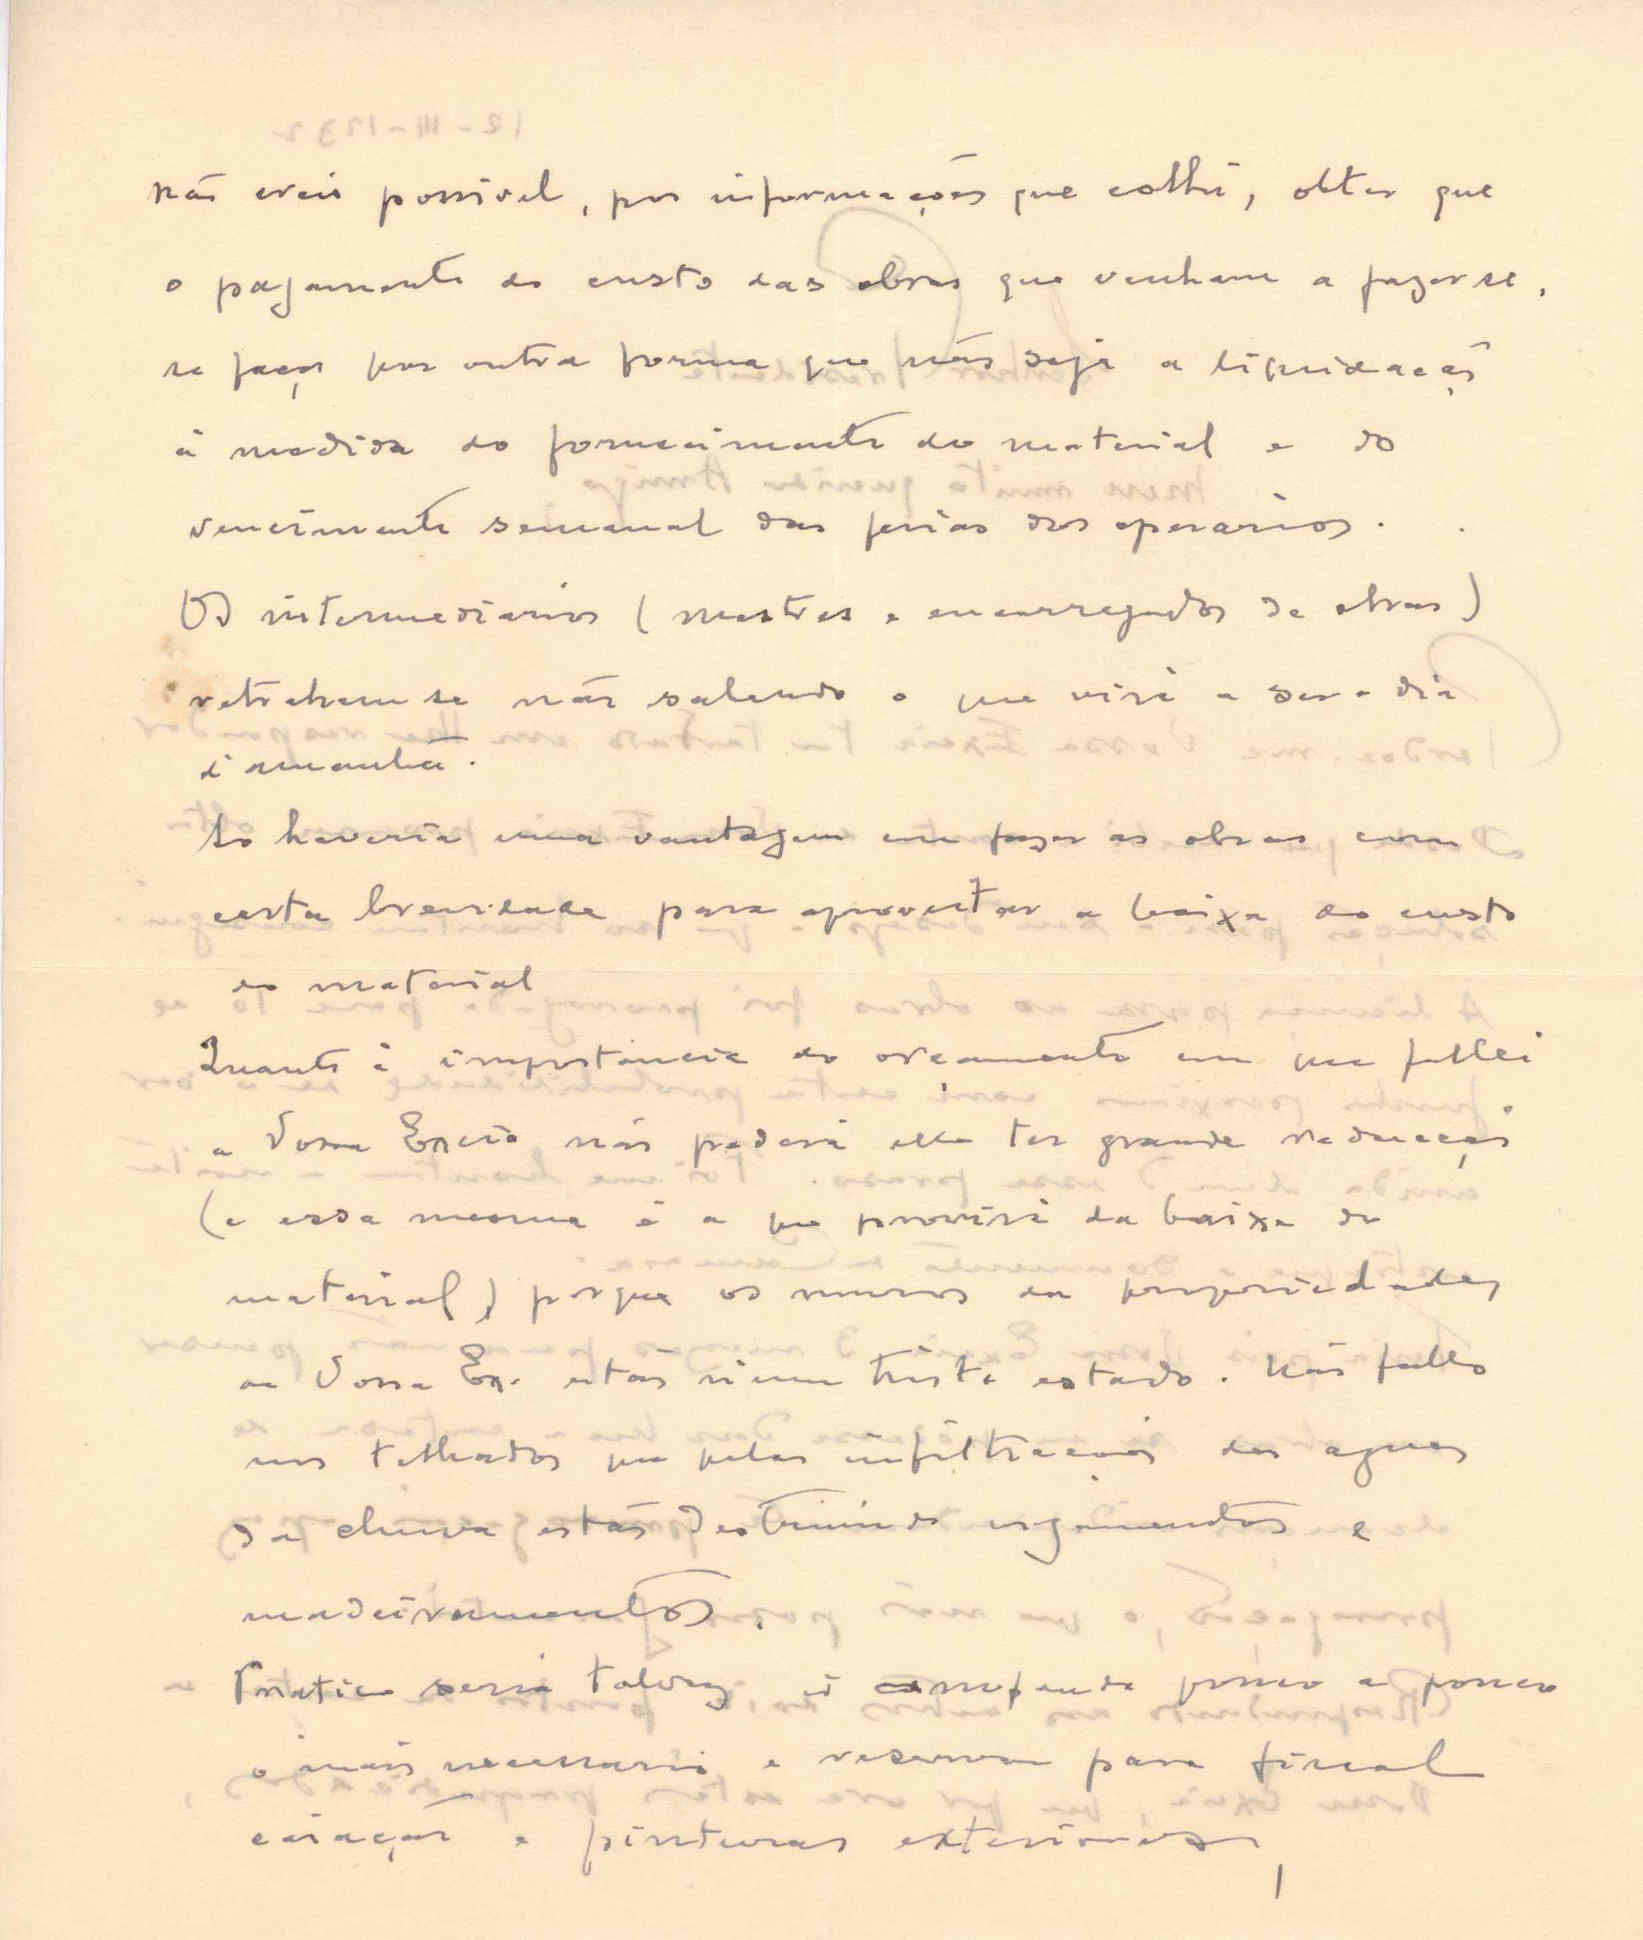 não creio possivel, por informações que colhi, obter que
o pagamento do custo das obras que venham a fazer se,
se faça por outra forma que não seja a liquidação
á medida do fornecimento do material e do
vencimento semanal das ferias dos operarios.
Os intermediarios (mestres e encarregados de obras)
retrahem se não sabendo o que virá a ser o dia
d'amanhã.
So haveria uma vantagem em fazer as obras com
certa brevidade para aproveitar a baixa do custo
do material
Quanto á importancia do orçamento em que fallei
a Vossa Excia não poderá elle ter grande reducção
(e essa mesma é a que provirá da baixa do
material) porque os muros da propriedade
de Vossa Ex. estão n'um triste estado. Não fallo
nos telhados que pelas infiltrações das aguas
da chuva estão destruindo vigamentos e
madeiramentos.
Pratico seria talvez ir pouco a pouco
o mais necessario e reservar para final
caiação e pinturas exteriores,